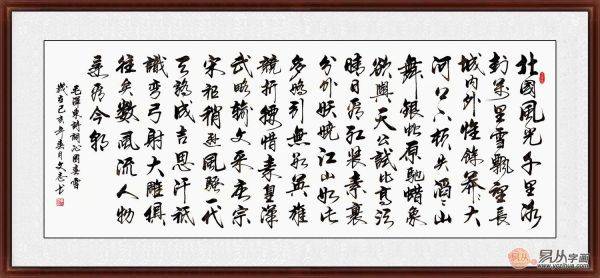 北國風光千里冰
封萬里雪飄望長
城內外惟餘莽〻大
河上下頓失滔〻山
舞銀蛇原馳蠟象
欲與天公試比高須
晴日看紅裝素裹
分外妖嬈江山如此
多嬌引無數英雄
競折腰惜秦皇漢
武略輸文采唐宗
宋祖稍遜風騷一代
天驕成吉思汗祇
識彎弓射大雕俱
往矣數風流人物
還看今朝
毛澤東詩詞沁園春雪
歲在己亥年月文志书
易从字画
www.yczihua.com